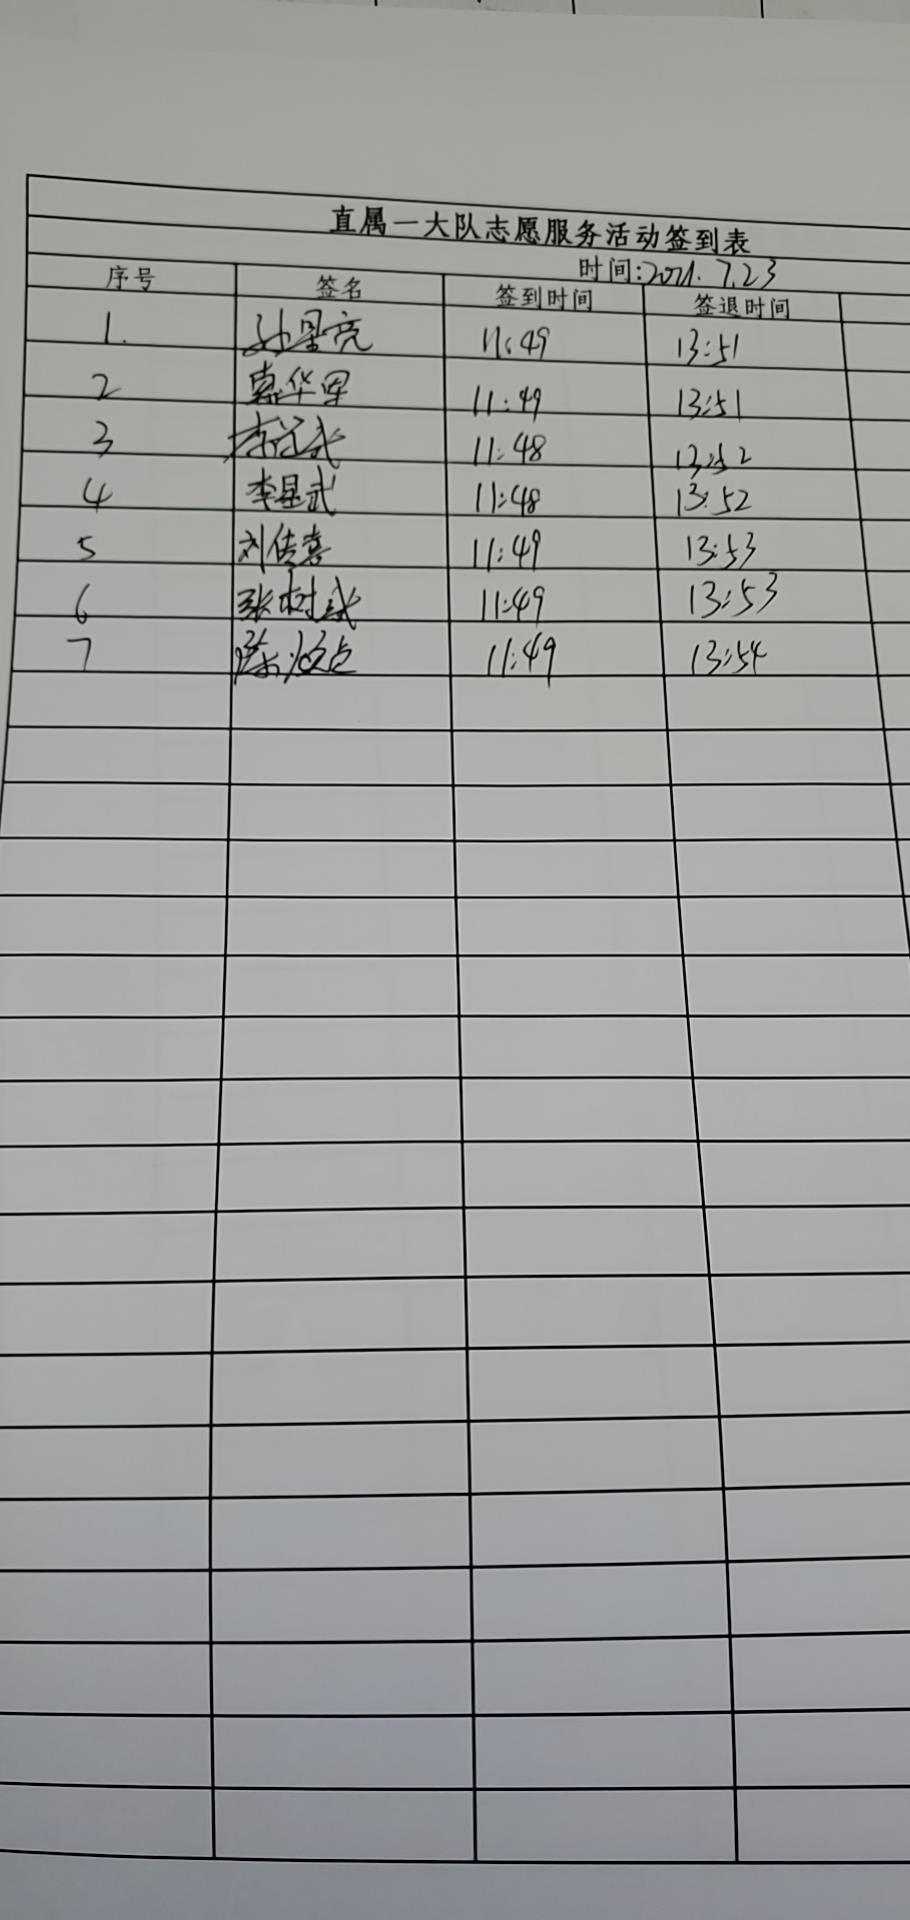 直属一大队志愿服务活动签到表
时间:2021.7.23
序号 签名 签到时间 签退时间
1. 11:49 13:51
2 华军 11:49 13:51
3 李 武 11:48 13:52
4 李显武 11:48 13:52
5 刘传喜 11:49 13:53
6 张树武 11:49 13:53
7 11:49 13:54